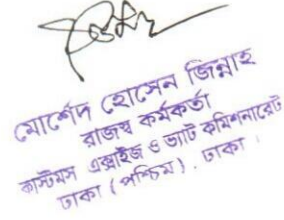 মোর্শেদ হোসেন জিন্নাহ
রাজস্ব কর্মকর্তা
কাস্টমস এক্সাইজ ও ভ্যাট কমিশনারেট
ঢাকা (পশ্চিম). ঢাকা।